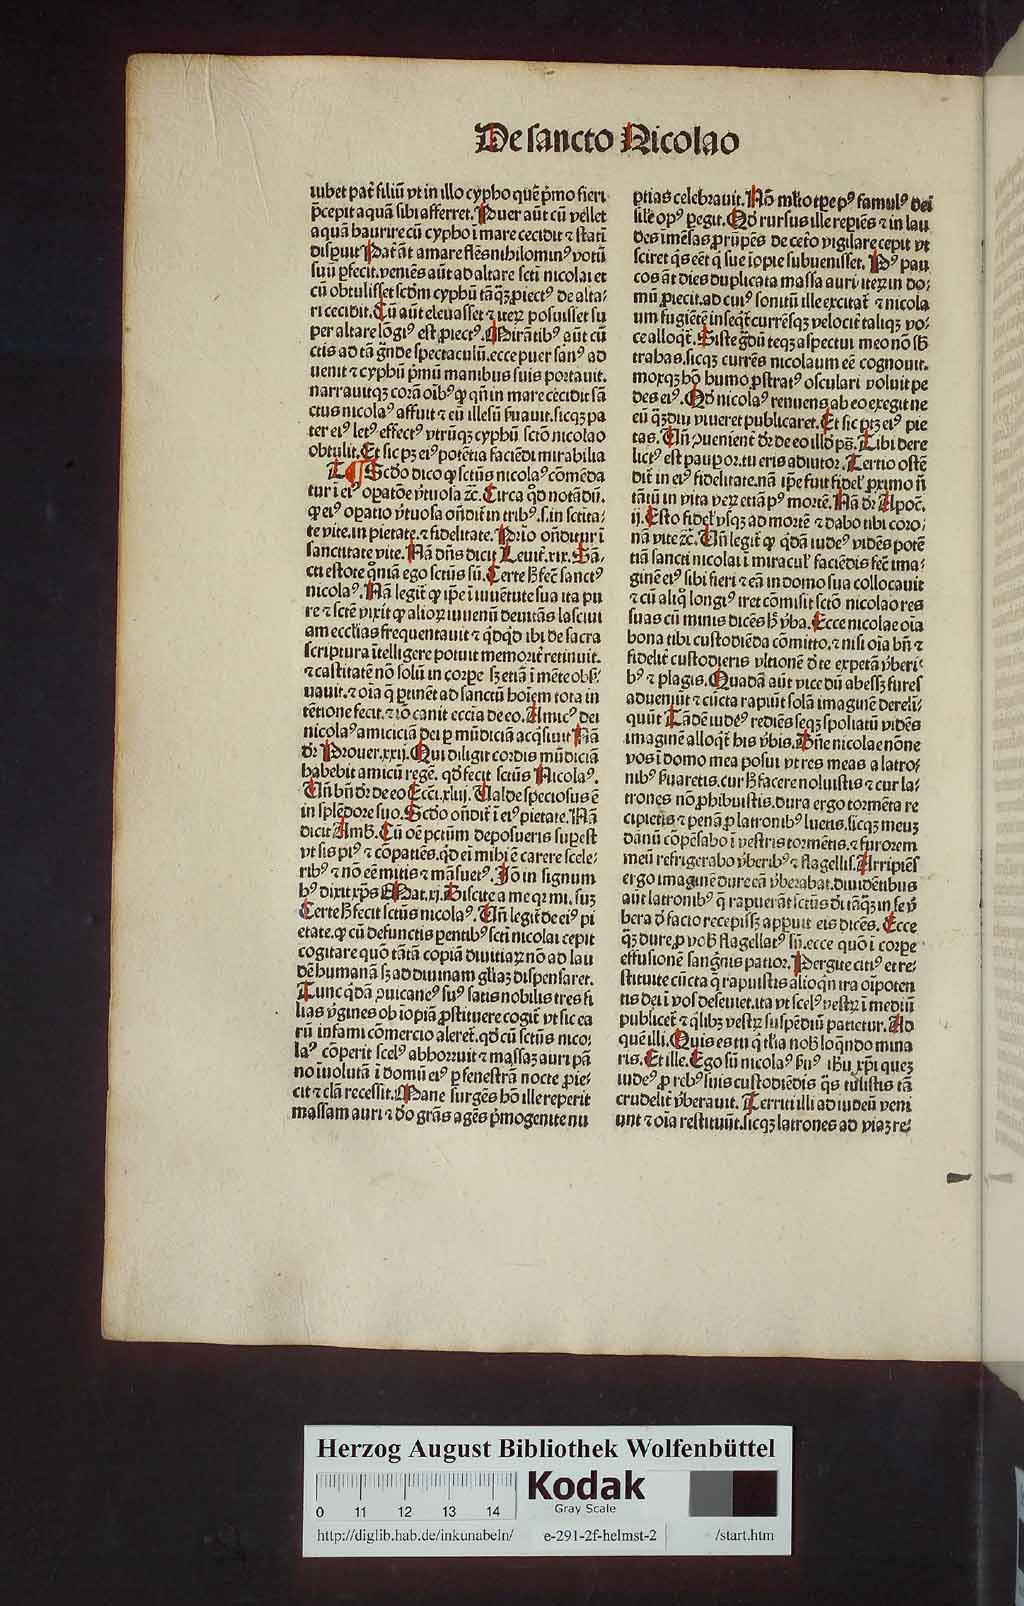 De sancto Nicolao
iubet pat̄ filiū vt in illo cypho quē p̄mo fieri
p̄cepit aquā sibi afferret. Puer aūt cū vellet
aquā haurire cū cypho ī mare cecidit ⁊ statī
disp̄uit Pat̄ āt amare flēs nihilomin⁹ votū
suū p̄fecit. veniēs aūt ad altare scti nicolai et
cū obtulisset scd̄m cyphū tāq̄ꝫ ꝓiect⁹ de alta⸗
ri cecidit. Cū aūt eleuasset ⁊ iteꝝ posuisset su
per altare lōgi⁹ est ꝓiect⁹. Mirātib⁹ aūt cū
ctis ad tā grāde spectaculū. ecce puer san⁹ ad
uenit ⁊ cyphū p̄mū manibus suis portauit.
narrauitqꝫ corā oīb⁹ ꝙ qn̄ in mare cecidit sā
ctus nicola⁹ affuit ⁊ eū illesū ẜuauit. sicqꝫ pa
ter ei⁹ let⁹ effect⁹ vtrūqꝫ cyphū sctō nicolao
obtulit. Et sic pꝫ ei⁹ potētia faciēdi mirabilia
¶ Scd̄o dico ꝙ sctūs nicola⁹ cōmēda
tur ī ei⁹ oꝑatōe v̄tuosa ⁊c̄. Circa qd̄ notādū.
ꝙ ei⁹ oꝑatio v̄tuosa on̄dit̄ in trib⁹. s. in sctita⸗
te vite. in pietate. ⁊ fidelitate. Prīo on̄ditur ī
sanctitate vite. Nā dn̄s dicit Leuit̄. xix. Sā⸗
cti estote qm̄a ego sctūs sū. Certe h̄ fec̄ sanct⁹
nicola⁹. Nā legit̄ ꝙ ip̄e ī iuuētute sua ita pu
re ⁊ sctē vixit ꝙ alioꝝ iuuenū deuitās lasciui
am ecclīas frequentauit ⁊ qd̄qd̄ ibi de sacra
scriptura ītelligere potuit memorit̄ retinuit.
⁊ castitatē nō solū in corꝑe sꝫ etiā ī mēte obẜ⸗
uauit. ⁊ oīa q̄ ꝑtinēt ad sanctū hoīem tota in
tētione fecit. ⁊ iō canit eccīa de eo. Amic⁹ dei
nicola⁹ amiciciā dei ꝑ mūdiciā acq̄siuit Nā
dr̄ Prouer. xxij. Qui diligit cordis mūdiciā
habebit amicū regē. qd̄ fecit sctūs Nicola⁹.
Vn̄ bn̄ dr̄ de eo Ecci. xliij. Valde speciosus ē
in splēdore suo. Scd̄o on̄dit̄ ī ei⁹ pietate. Nā
dicit Amb̄. Cū oē pctūm deposueris suꝑest
vt sis pi⁹ ⁊ cōpatiēs. qd̄ ei mihi ē carere scele⸗
rib⁹ ⁊ nō eē mitis ⁊ māsuet⁹. Jō in signum
h⁹ dixit xp̄s Mat. xj. Discite a me qꝛ mi. suꝫ
Certe h̄ fecit sctūs nicola⁹. Vn̄ legit̄ de ei⁹ pi
etate. ꝙ cū defunctis ꝑentib⁹ sctī nicolai cepit
cogitare quō tātā copiā diuitiaꝝ nō ad lau
dē humanā sꝫ ad diuinam glīaꝫ dispensaret.
Tunc qd̄ā ꝯuicane⁹ su⁹ satis nobilis tres fi
lias v̄gines ob iopiā ꝓstituere cogit̄ vt sic ea
rū infami cōmercio aleret̄. qd̄ cū sctūs nico⸗
la⁹ cōperit scel⁹ abhorruit ⁊ massaꝫ auri pā
no īuolutā ī domū ei⁹ ꝑ fenestrā nocte ꝓie⸗
cit ⁊ clā recessit. Mane surgēs hō ille reperit
massam auri ⁊ do grās agēs p̄mogenite nu
ptias celebrauit. Nō ml̄to tꝑe p⁹ famul⁹ dei
sil̄e op⁹ ꝑegit. Qd̄ rursus ille reꝑiēs ⁊ in lau
des imēsas ꝓrūpēs de ceto vigilare cepit vt
sciret q̄s eēt q̄ sue iopie subuenisset. P⁹ pau
cos āt dies duplicata massa auri iteꝝ in do⸗
mū ꝓiecit. ad cui⁹ sonitū ille excitat̄ ⁊ nicola
um fugiētē inseqt̄ currēsqꝫ velocit̄ taliqꝫ vo⸗
ce alloqt̄. Siste gradū teqꝫ aspectui meo nō sb̄
trahas. sicqꝫ currēs nicolaum eē cognouit.
moxqꝫ hō humo ꝓstrat⁹ osculari voluit pe
des ei⁹. Qd̄ nicola⁹ renuens ab eo exegit ne
eū q̄ꝫdiu viueret publicaret. Et sic ptꝫ ei⁹ pie
tas. Vn̄ ꝯuenient̄ dr̄ de eo illd̄ ps̄. Tibi dere
lict⁹ est pauꝑ or. tu eris adiutor. Tertio ostē
dit̄ in ei⁹ fidelitate. nā ip̄e fuit fidel̄ ꝓximo n̄
tātū in vita veꝝ etiā p⁹ mortē. Nā dr̄ Apoc̄.
ij. Esto fidel̄ vsqꝫ ad mortē ⁊ dabo tibi coro⸗
nā vite ⁊c̄. Vn̄ legit̄ ꝙ qd̄ā iude⁹ vidēs potē
tiā sancti nicolai ī miracul̄ faciēdis fec̄ ima⸗
ginē ei⁹ sibi fieri ⁊ eā in domo sua collocauit
⁊ cū aliq̄ longi⁹ iret cōmisit sctō nicolao res
suas cū minis dicēs h̄ v̄ba. Ecce nicolae oīa
bona tibi custodiēda cōmitto. ⁊ nisi oīa bn̄ ⁊
fidelit̄ custodieris vltionē d̄ te expetā v̄beri⸗
b⁹ ⁊ plagis. Quadā aūt vice dū abessꝫ fures
adueniūt ⁊ cūcta rapiūt solā imaginē dereli⸗
quūt Tādē iude⁹ rediēs seqꝫ spoliatū vidēs
imaginē alloqt̄ his v̄bis. Dn̄e nicolae nōne
vos ī domo mea posui vt res meas a latro⸗
nib⁹ ẜuaretis. cur h̄ facere noluistis ⁊ cur la⸗
trones nō ꝓhibuistis. dura ergo tormēta re
cipietis ⁊ penā ꝓ latronib⁹ luetis. sicqꝫ meuꝫ
dānū cōpēsabo ī vestris tormētis. ⁊ furorem
meū refrigerabo v̄berib⁹ ⁊ flagellis. Arripiēs
ergo imaginē dure eā v̄berabat. diuidētibus
aūt latronib⁹ q̄ rapuerāt sctūs dī tāq̄ꝫ in se v̄
bera d̄ facto recepissꝫ appuit eis dicēs. Ecce
q̄ꝫ dure ꝓ vob̄ flagellat⁹ sū. ecce quō ī corꝑe
effusionē sanguīs patior. Pergue citi⁹ et re⸗
stituite cūcta q̄ rapuistis alioqn̄ ira oīpoten
tis dei ī vos deseuiet. ita vt scel⁹ vestꝝ ī mediū
publicet̄ ⁊ qlibꝫ vestꝝ suspēdiū patietur. Ad
quē illi. Quis es tu q̄ talia nob̄ loqn̄do mina
ris. Et ille. Ego sū nicola⁹ ẜu⁹ ih̄u xp̄i queꝫ
iude⁹ ꝓ reb⁹ suis custodiēdis q̄s tulistis tā
crudelit̄ v̄berauit. Territi illi ad iudeū veni
unt ⁊ oīa restituūt. sicqꝫ latrones ad viaꝫ re⸗
Herzog August Bibliothek Wolfenbüttel
Kodak
Gray Scale
0 11 12 13 14
http://diglib.hab.de/inkunabeln/ e-291-2f-helmst-2 /start.htm